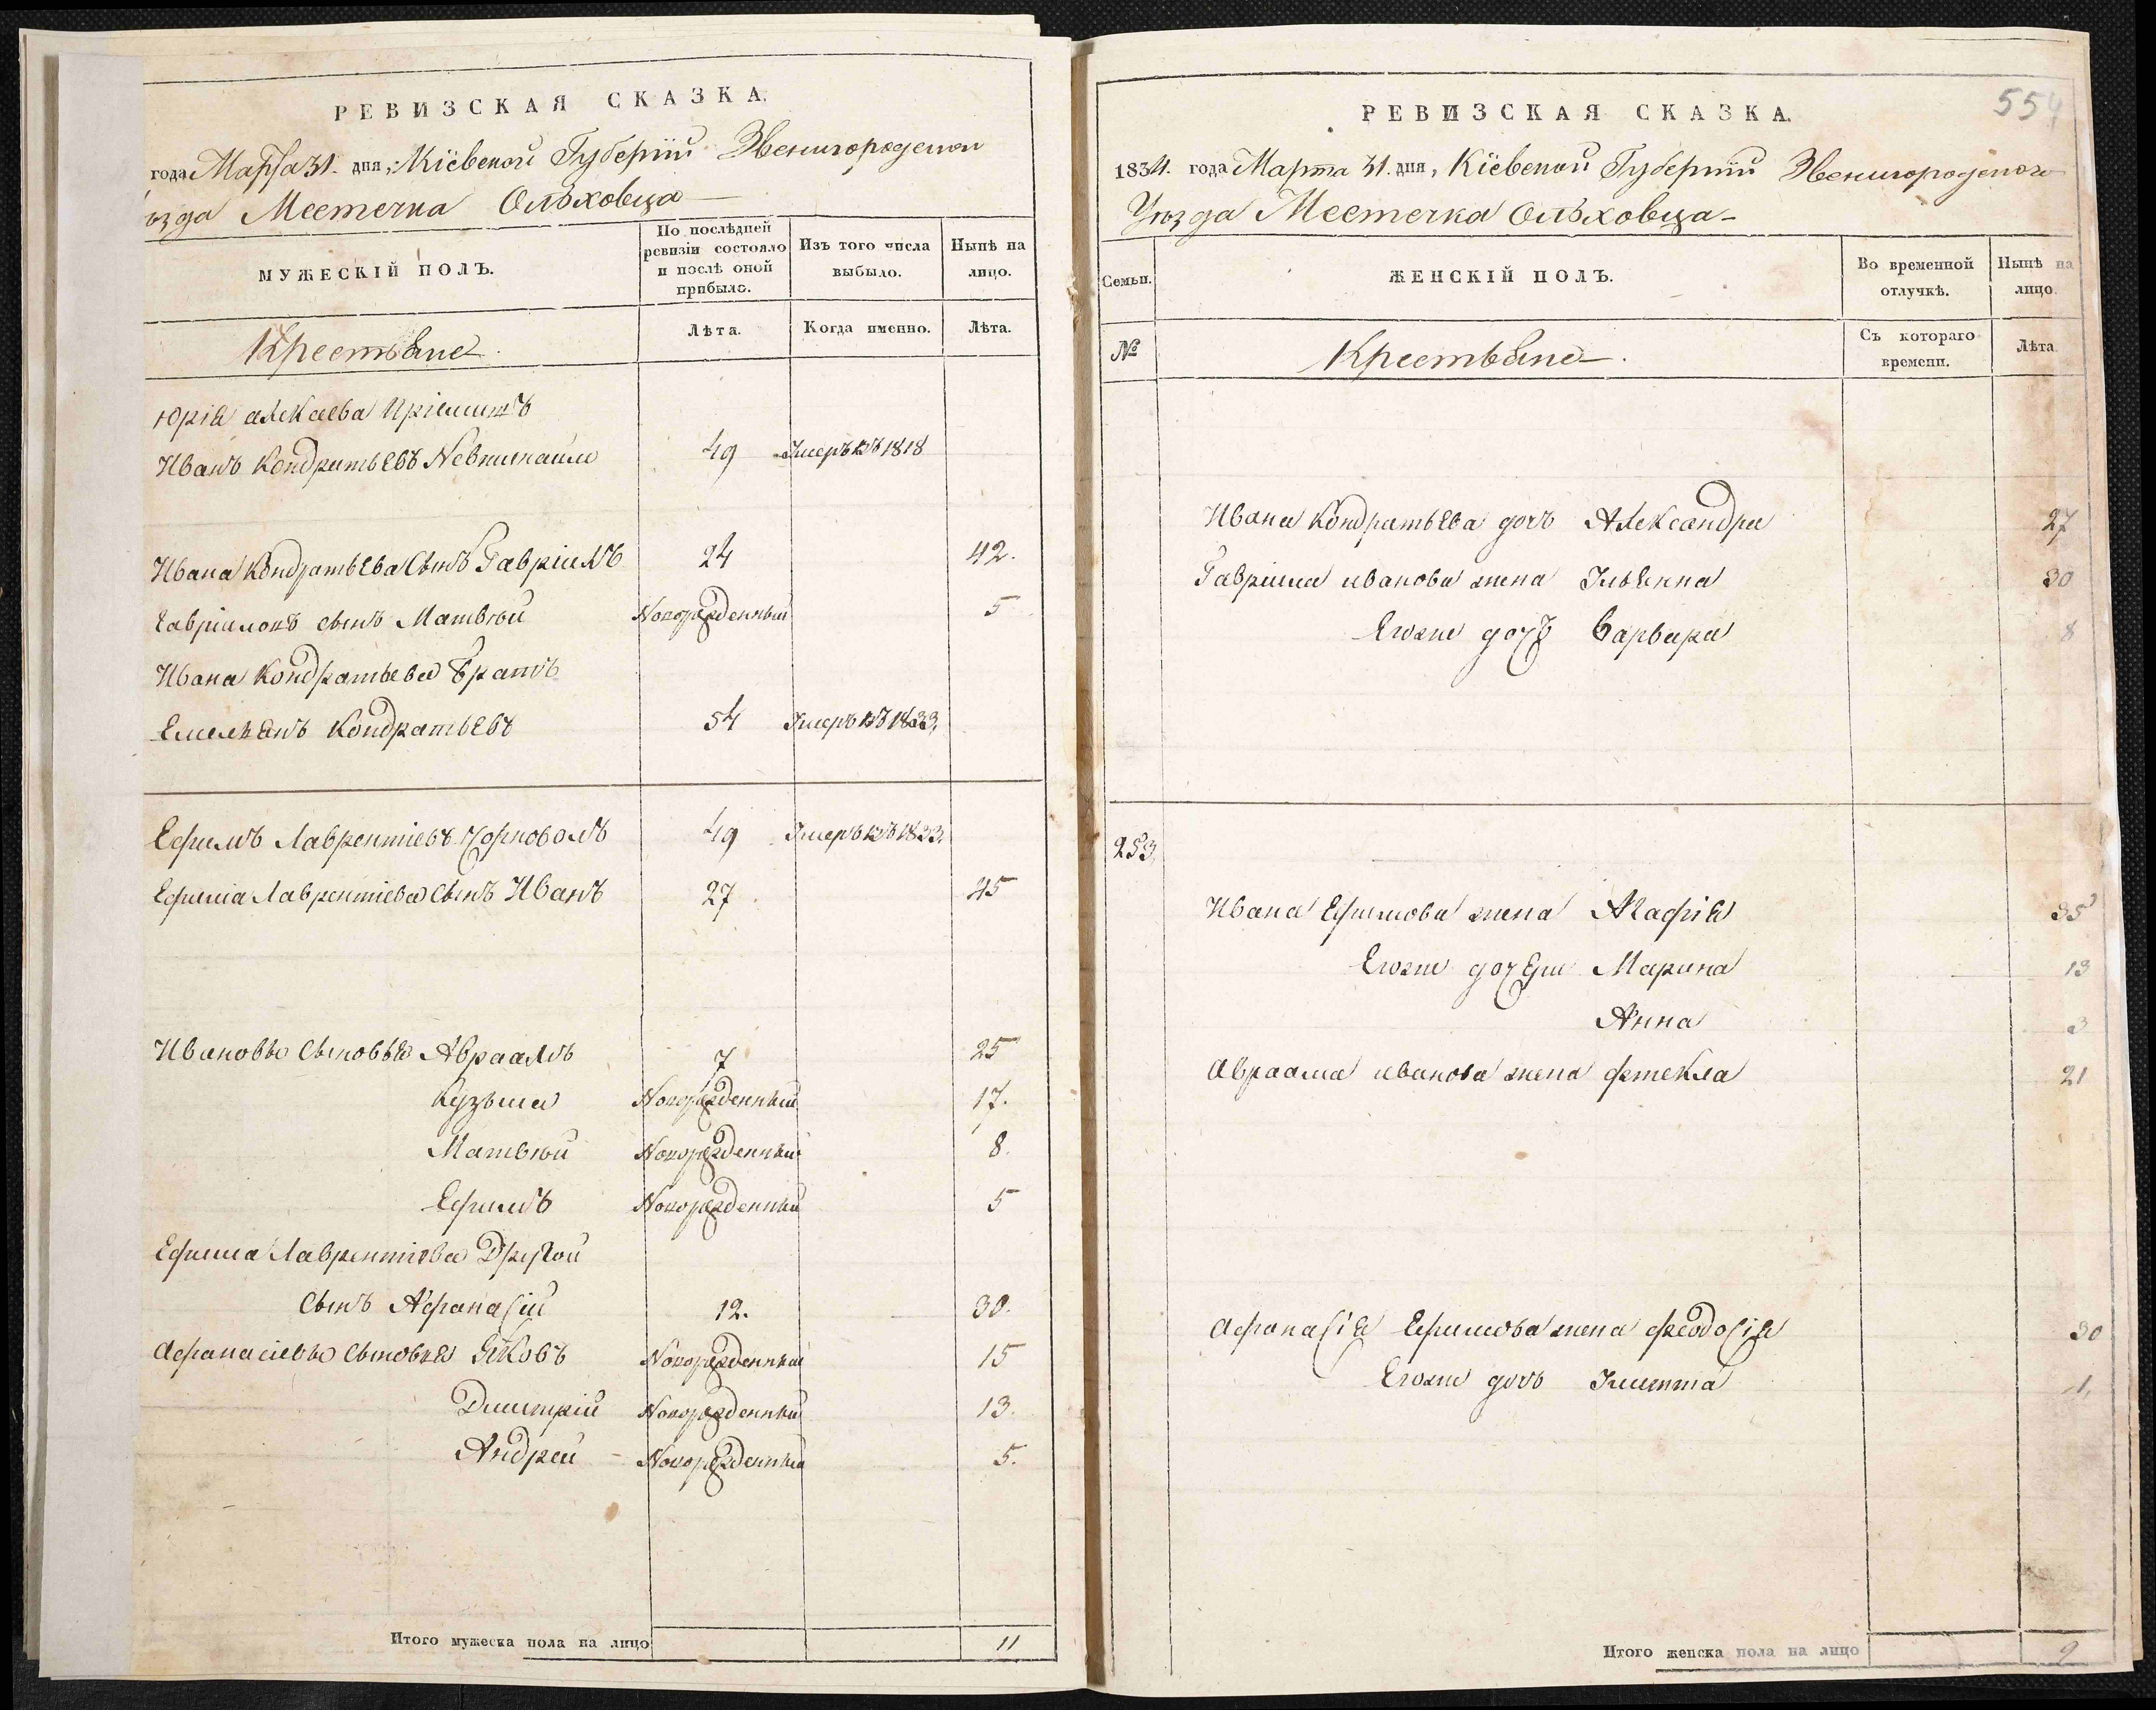 РЕВИЗСКАЯ СКАЗКА.
года Марта 31. дня, Кіевской Губерніи Звенигородскаго
ѣзда Местечка Ольховца
МУЖЕСКІЙ ПОЛЪ.
По послѣдней ревизіи состояло и послѣ оной прибыло.
Изъ того числа выбыло.
Нынѣ на лицо.
Крестьяне.
Лѣта.
Когда именно.
Лѣта.
Юрія алекаева
Иванъ Кондратьевъ 49 Умеръ въ 1818
Ивана Кондратьева Сынъ Гавріилъ 24 42.
Гавріиловъ сынъ Матвѣй Новорожденный 5
Ивана Кондратьева братъ
Емельянъ Кондратьевъ 54 Умеръ въ 1833,
Ефимъ Лаврентіевъ Чорноволъ 49 Умеръ въ 1833,
Ефима Лаврентіева Сынъ Иванъ 27 45
Ивановы Сыновья Авраамъ 7 25
Кузьма Новорожденный 17.
Матвѣй Новорожденный 8.
Ефимъ Новорожденный 5
Ефима Лаврентіева Другой
Сынъ Афанасій 12. 30.
Афанасіевы Сыновья Яковъ Новорожденный 15
Дмитрій Новорожденный 13.
Андрей Новорожденный 5.
Итого мужеска пола на лицо 11
554
РЕВИЗСКАЯ СКАЗКА.
1834. года Марта 31. дня, Кіевской Губерніи Звенигородского
Уѣзда Местечка Ольховца
Семьи.
ЖЕНСКІЙ ПОЛЪ.
Во временной отлучкѣ.
Нынѣ на лицо.
№
Крестьяне.
Съ котораго времени.
Лѣта.
Ивана Кондратьева дочь Александра 27
Гавріила иванова жена Ульянна 30
Егоже дочь Варвара 8
253,
Ивана Ефимова жена Агафія 35
Егоже дочери Марина 13
Анна 3
Авраама иванова жена Фтекла 21
Афанасія Ефимова жена Феодосія 30
Егоже дочь 1,
Итого женска пола на лицо 9